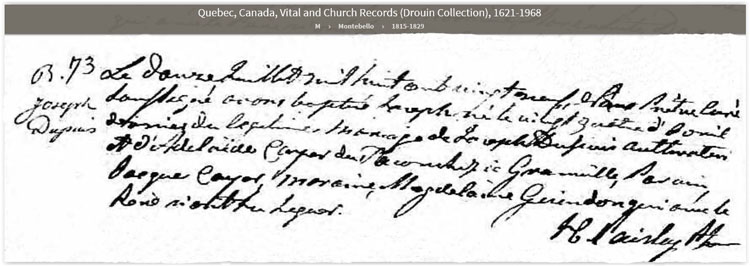 Quebec, Canada, Vital and Church Records (Drouin Collection), 1621-1968
M › Montebello › 1815-1829
B. 73
Joseph
Dupuis
Le douze Juillet mil huit cent vingt neuf, Nous Prêtre Curé
Soussigné avons baptisé Joseph, né le vingt quatre d'Avril
dernier du légitime mariage de Joseph Dupuis cultivateur
et d'Adelaide Cayer du Township de Granville, Parain
Jacque Cayer, maraine Magdelaine Guindon qui avec le
Père n'ont su signer.